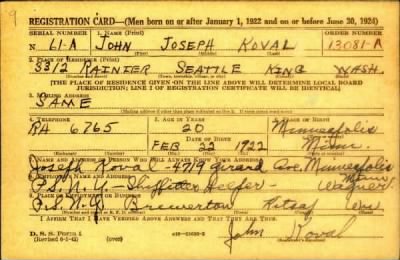 9
REGISTRATION CARD—(Men born on or after January 1, 1922 and on or before June 30, 1924)
SERIAL NUMBER 1. NAME (Print) ORDER NUMBER
N 61-A JOHN JOSEPH KOVAL 13081-A
(First) (Middle) (Last)
2. PLACE OF RESIDENCE (Print)
5312 RAINIER SEATTLE KING WASH.
(Number and street) (Town, township, village, or city) (County) (State)
[THE PLACE OF RESIDENCE GIVEN ON THE LINE ABOVE WILL DETERMINE LOCAL BOARD
JURISDICTION; LINE 2 OF REGISTRATION CERTIFICATE WILL BE IDENTICAL]
3. MAILING ADDRESS
SAME
4. TELEPHONE 5. AGE IN YEARS 6. PLACE OF BIRTH
RA 6765 20 Minneapolis
DATE OF BIRTH
FEB 22 1922 Minn.
7. NAME AND ADDRESS OF PERSON WHO WILL ALWAYS KNOW YOUR ADDRESS
Joseph Koval - 4719 Girard Ave. Minneapolis
Minn
P.S.N.Y. - Shipfitter Helper -
P.S.N.Y. Bremerton Kitsap Wn
I AFFIRM THAT I HAVE VERIFIED ABOVE ANSWERS AND THAT THEY ARE TRUE.
D. S. S. Form 1
(Revised 6-1-42) (over)
John Koval